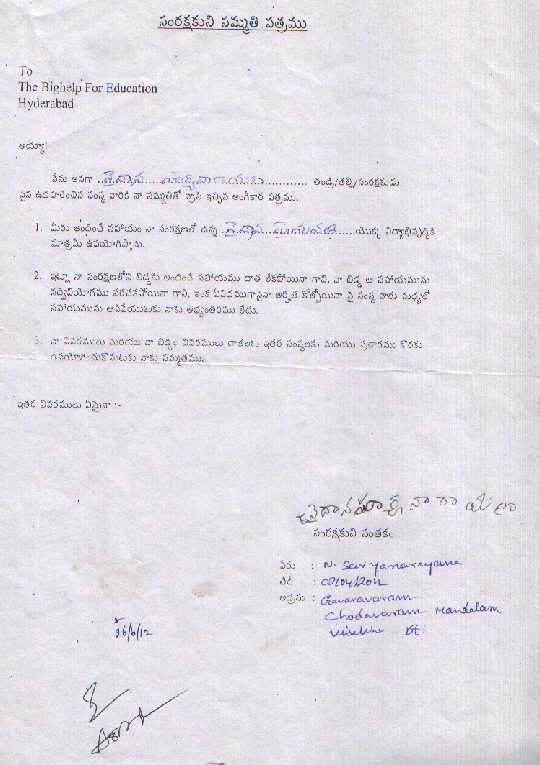 సంరక్షకుని సమ్మతి పత్రము
To
The Bighelp For Education
Hyderabad
అయ్యా!
నేను అనగా ............ తండ్రి/తల్లి/సంరక్షకుడు
పైన ఉదహరించిన సంస్థ వారికి నా సమ్మతితో వ్రాసి ఇచ్చిన అంగీకార పత్రము.
1. మీరు అందించే సహాయం నా సంరక్షణలో ఉన్న యొక్క విద్యాభివృద్ధికి
మాత్రమే ఉపయోగిస్తాను.
2. ఇట్లా నా సంరక్షణలోని బిడ్డకు అందించే సహాయము దాత లేకపోయినా గాని, నా బిడ్డ ఆ సహాయమును
సద్వినియోగము పరచకపోయినా గాని, ఇంక ఏవిధముగానైనా అర్హత కోల్పోయినా పై సంస్థ వారు మధ్యలో
సహాయమును ఆపివేయుటకు నాకు అభ్యంతరము లేదు.
3. నా వివరములు మరియు నా బిడ్డ వివరములు దాతలకు ఇతర సంస్థలకు మరియు ప్రచారము కొరకు
ఉపయోగించుకొనుటకు నాకు సమ్మతము.
ఇతర వివరములు ఏమైనా :-
సంరక్షకుని సంతకం
పేరు : N. Suryanarayana
తేది : 02/04/2012
అడ్రసు : Gavaravaram
Chodavaram Mandalam
26/6/12